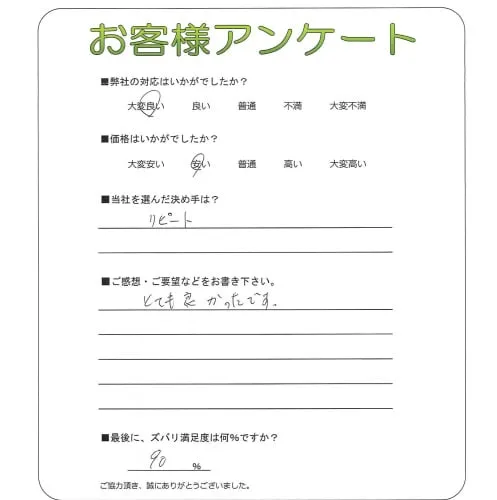 お客様アンケート
■弊社の対応はいかがでしたか？
大変良い 良い 普通 不満 大変不満
■価格はいかがでしたか？
大変安い 安い 普通 高い 大変高い
■当社を選んだ決め手は？
リピート
■ご感想・ご要望などをお書き下さい。
とても良かったです.
■最後に、ズバリ満足度は何%ですか？
90 %
ご協力頂き、誠にありがとうございました。